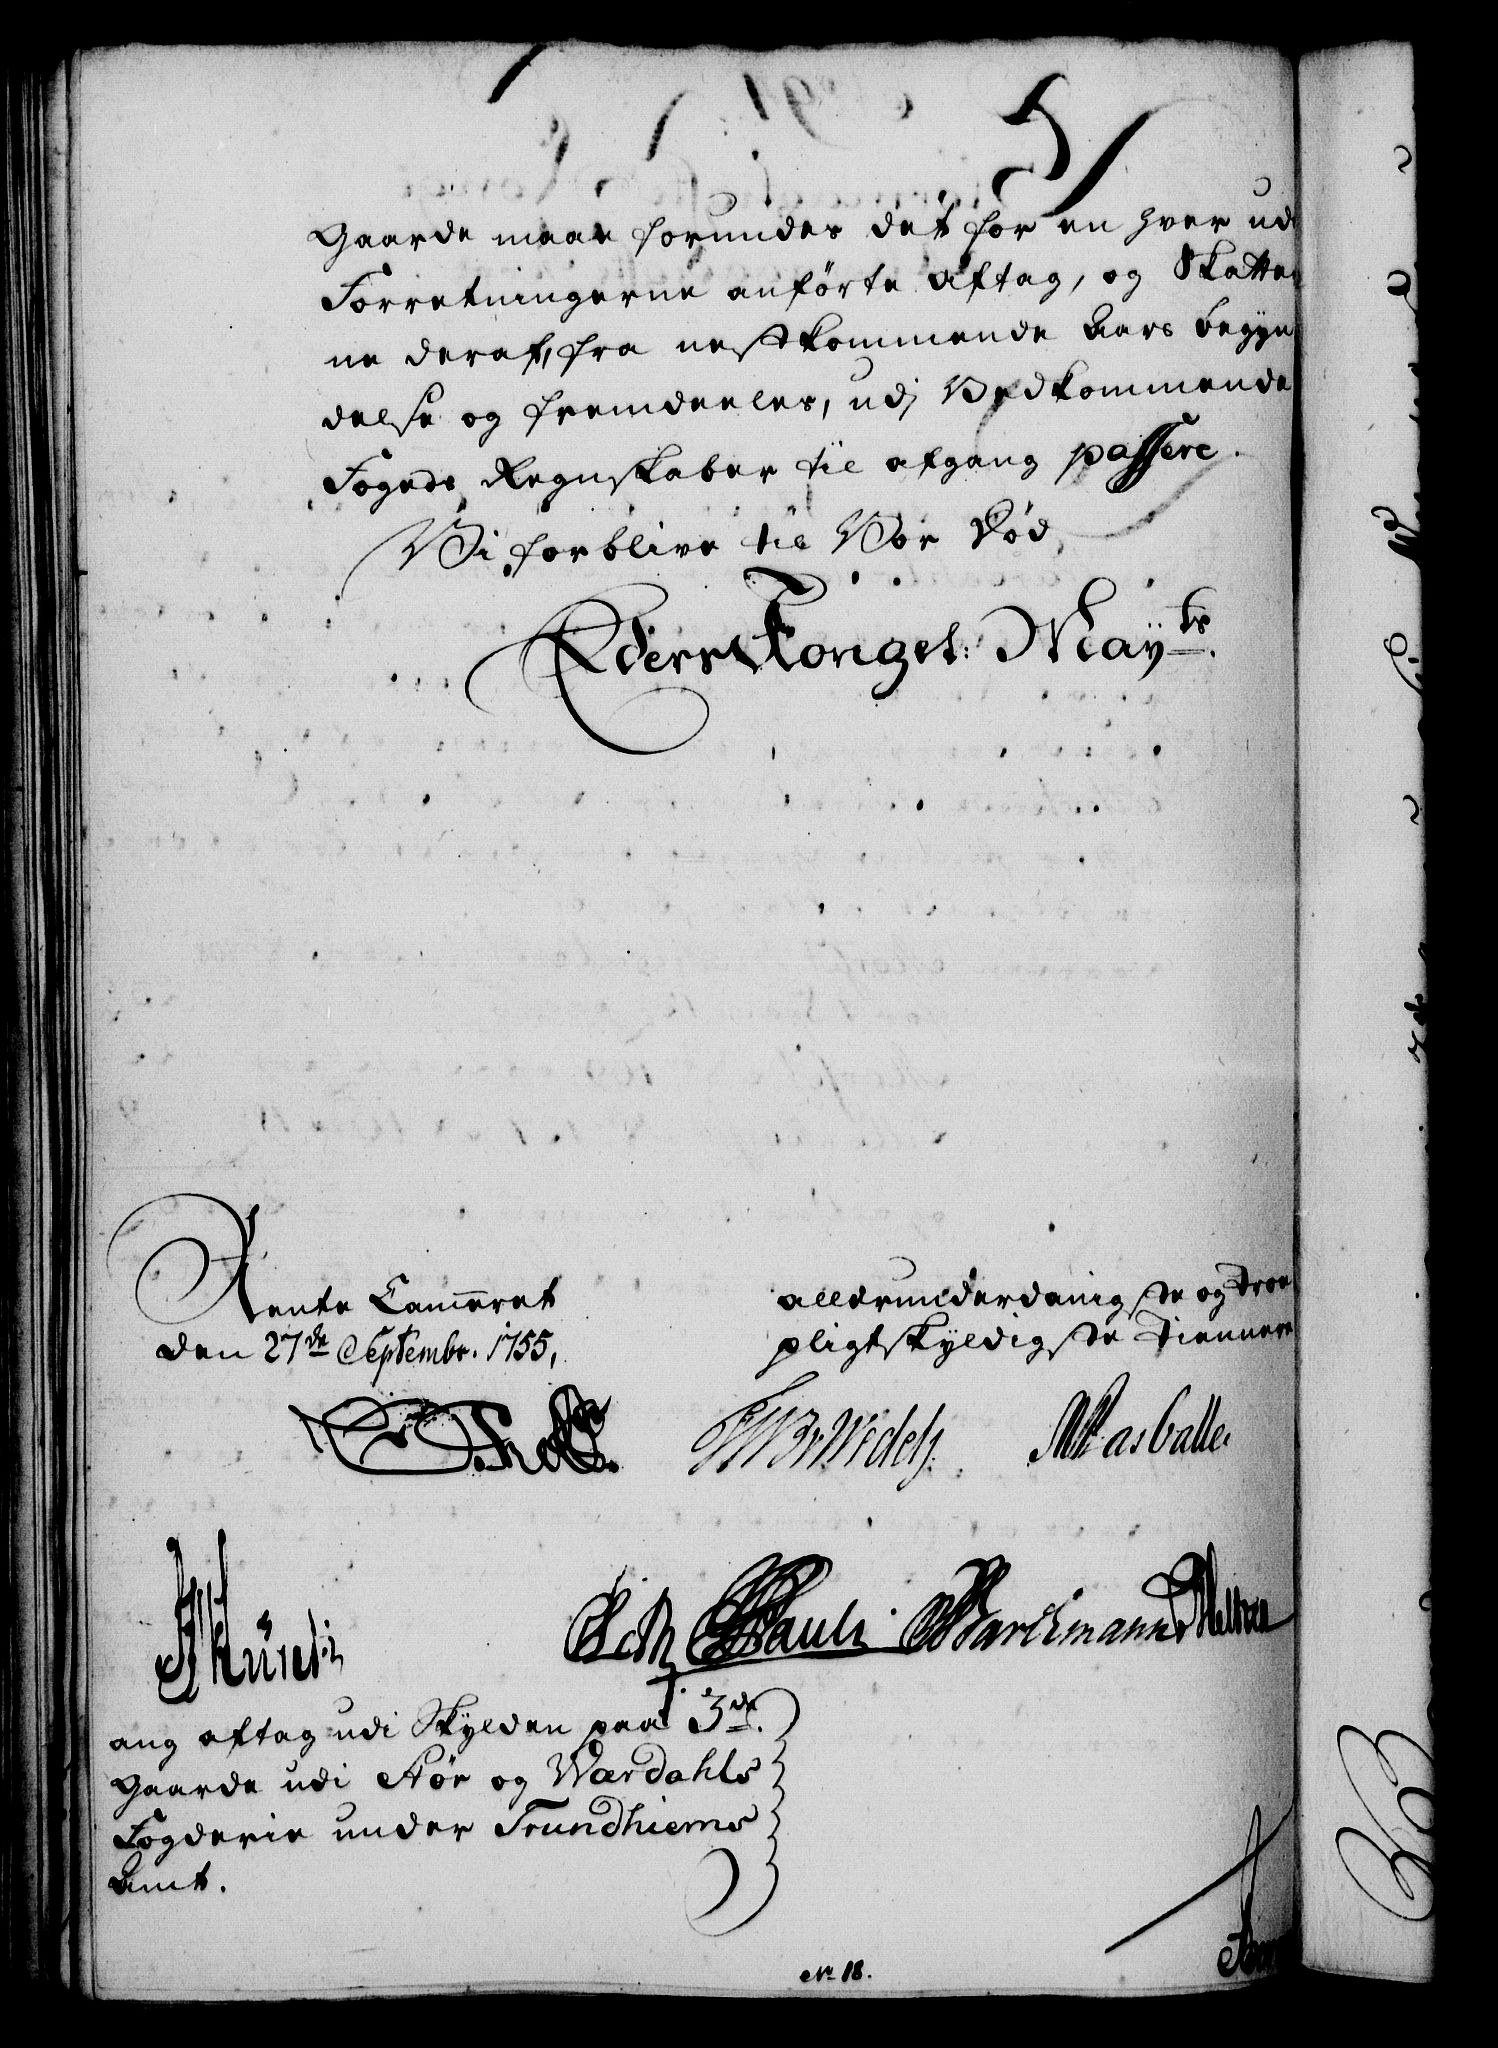 Gaarde maae forundes det for en hver udi
Forretningerne anførte Aftag, og Skatter-
ne deraf, fra nestkommende Aars begyn-
delse og fremdeeles, udj Vedkommende
Fogeds Regnskaber til afgang passere.
Vi forblive til Vor Død,
Eders Kongel: Mayts.
Rente Cammeret
den 27de Septembr. 1755,
allerunderdanigste og troe
pligtskyldigste Tiennere
Pauli
Barchmann
ang aftag udi Skylden paa 3de.
Gaarde udi Stør og Wærdahls
Fogderie under Trundhiems
Amt.
No 18.